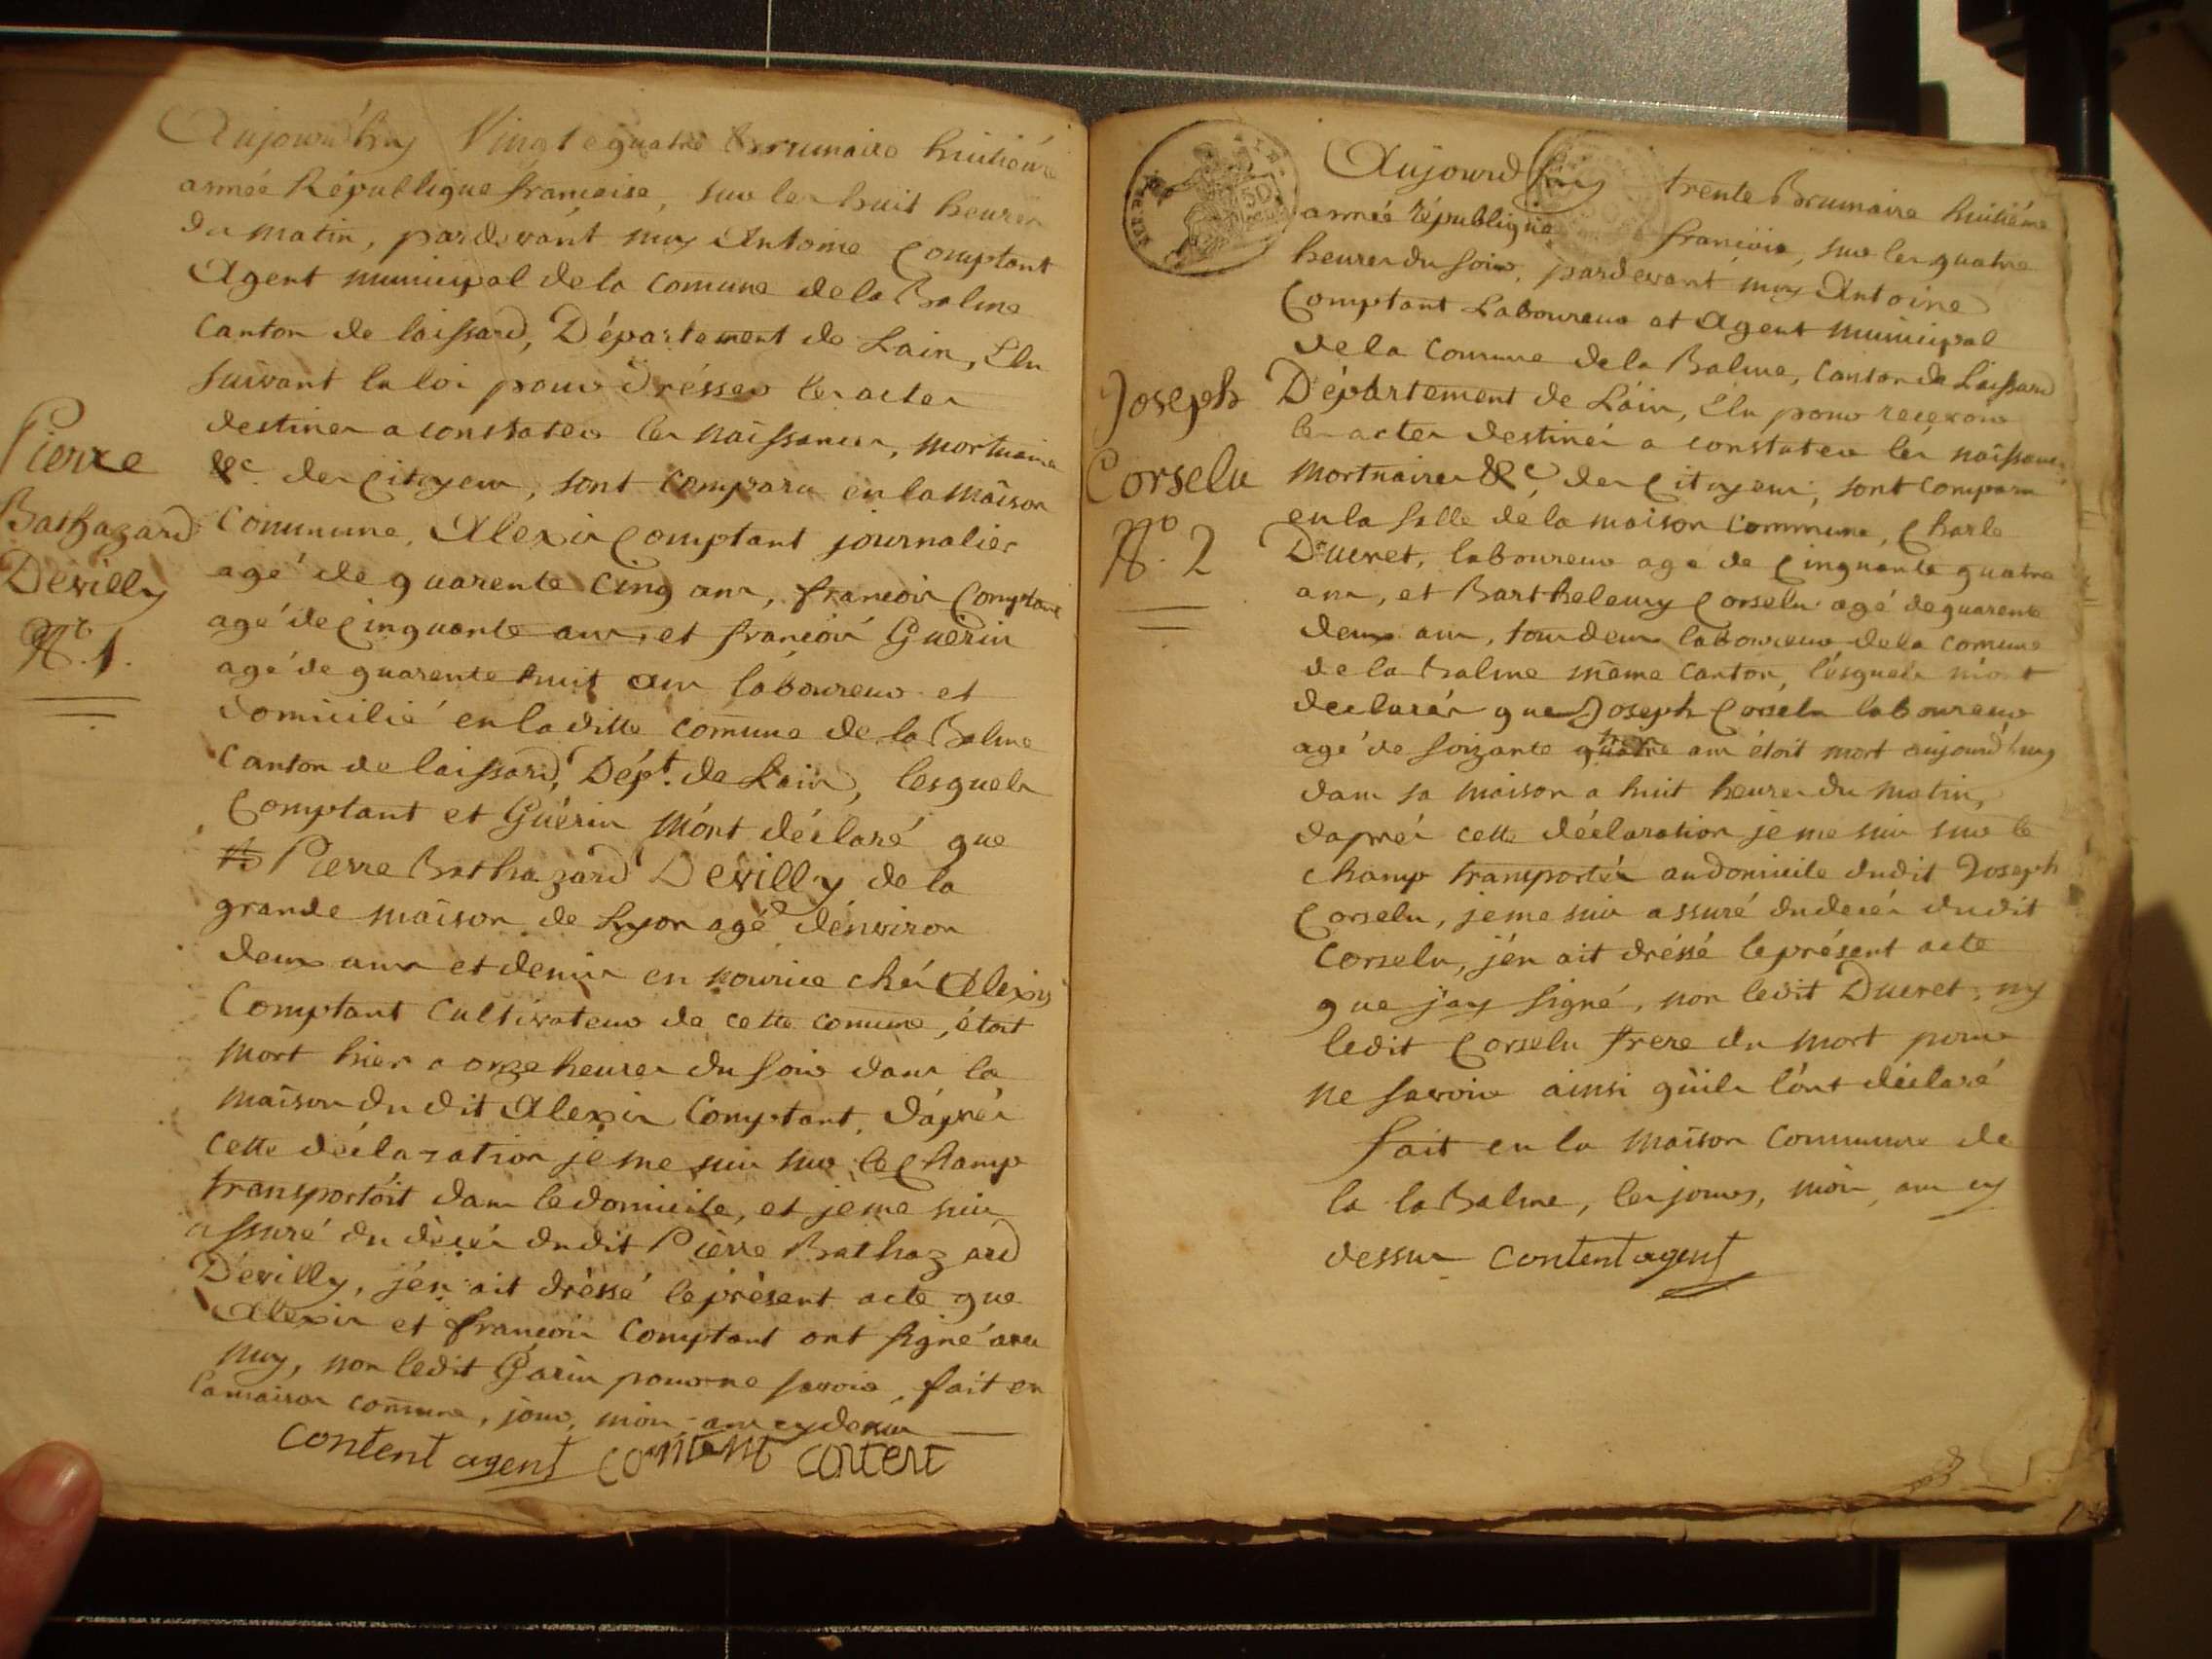 Aujourd'huy Vingt e quatre Brumaire huitiéme
année République francaise, sur les huit heures
du matin, pardevant moy Antoine Comptant
Agent municipal de la Comune de la Balme
Canton de laissard, Département de Lain, Elu
suivant la loi pour drésser les actes
destines a constater les naissances, mortuaires
&c. des Citoyens, sont comparu en la maison
Commune, Alexis Comptant journalier
agé de quarente cinq ans, francois Comptant
agé de cinquante ans, et francois Guérin
agé de quarente huit ans laboureur et
domicilié en la ditte comune de la Balme
Canton de laissard, Dépt. de Lain, lesquels
Comptant et Guérin m'ont déclaré que
Pierre Bathazard Devilly de la
grande maison de Lyon agé d'environ
deux ans et demis en nourice ché Alexis
Comptant Cultivateur de cette comune, étoit
mort hier a onze heures du soir dans la
maison du dit Alexis Comptant, d'aprés
cette déclaration je me suis sur le champ
transportóit dans le domicile, et je me suis
assuré du décés dudit Piérre Bathazard
Dévilly, j'én ait dréssé le présent acte que
Alexis et francois Comptant ont signé avec
moy, non ledit Garin pour ne savoir, fait en
la maison comune, jour, mois, ans cy dessus
content agent content content
Pierre
Bathazard
Devilly
No. 1.
Aujourd'huy trente Brumaire huitiéme
année républigue francoise, sur les quatre
heures du soir, pardevant moy Antoine
Comptant Laboureur et Agent municipal
de la Comune de la Balme, Canton de Laissard
Département de Láin, Élu pour recevoir
les actes destinés a constater lés naissances
mortuaires &c, des Citoyens, sont comparu
en la salle de la maison Commune, Charle
Ducret, laboureur agé de cinquante quatre
ans, et Barthelemy Corselu agé de quarente
deux ans, tous deux laboureur de la comune
de la Balme même Canton, lésquels m'ont
declarér que Joseph Corselu laboureur
agé de soizante ans étoit mort aujourd'huy
dans sa maison a huit heures du matin,
daprés cette déclaration je me suis sur le
champ transportér au domicile dudit Joseph
Corselu, je me suis assuré du decés dudit
Corselu, j'én ait dréssé le présent acte
que j'ay signé, non ledit Ducret, ny
ledit Corselu frere du mort pour
ne savoir ainsi qùils l'ónt déclaré
fait en la maison Commune de
la la Balme, les jours, mois, ans cy
dessus content agent
Joseph
Corselu
No. 2
50